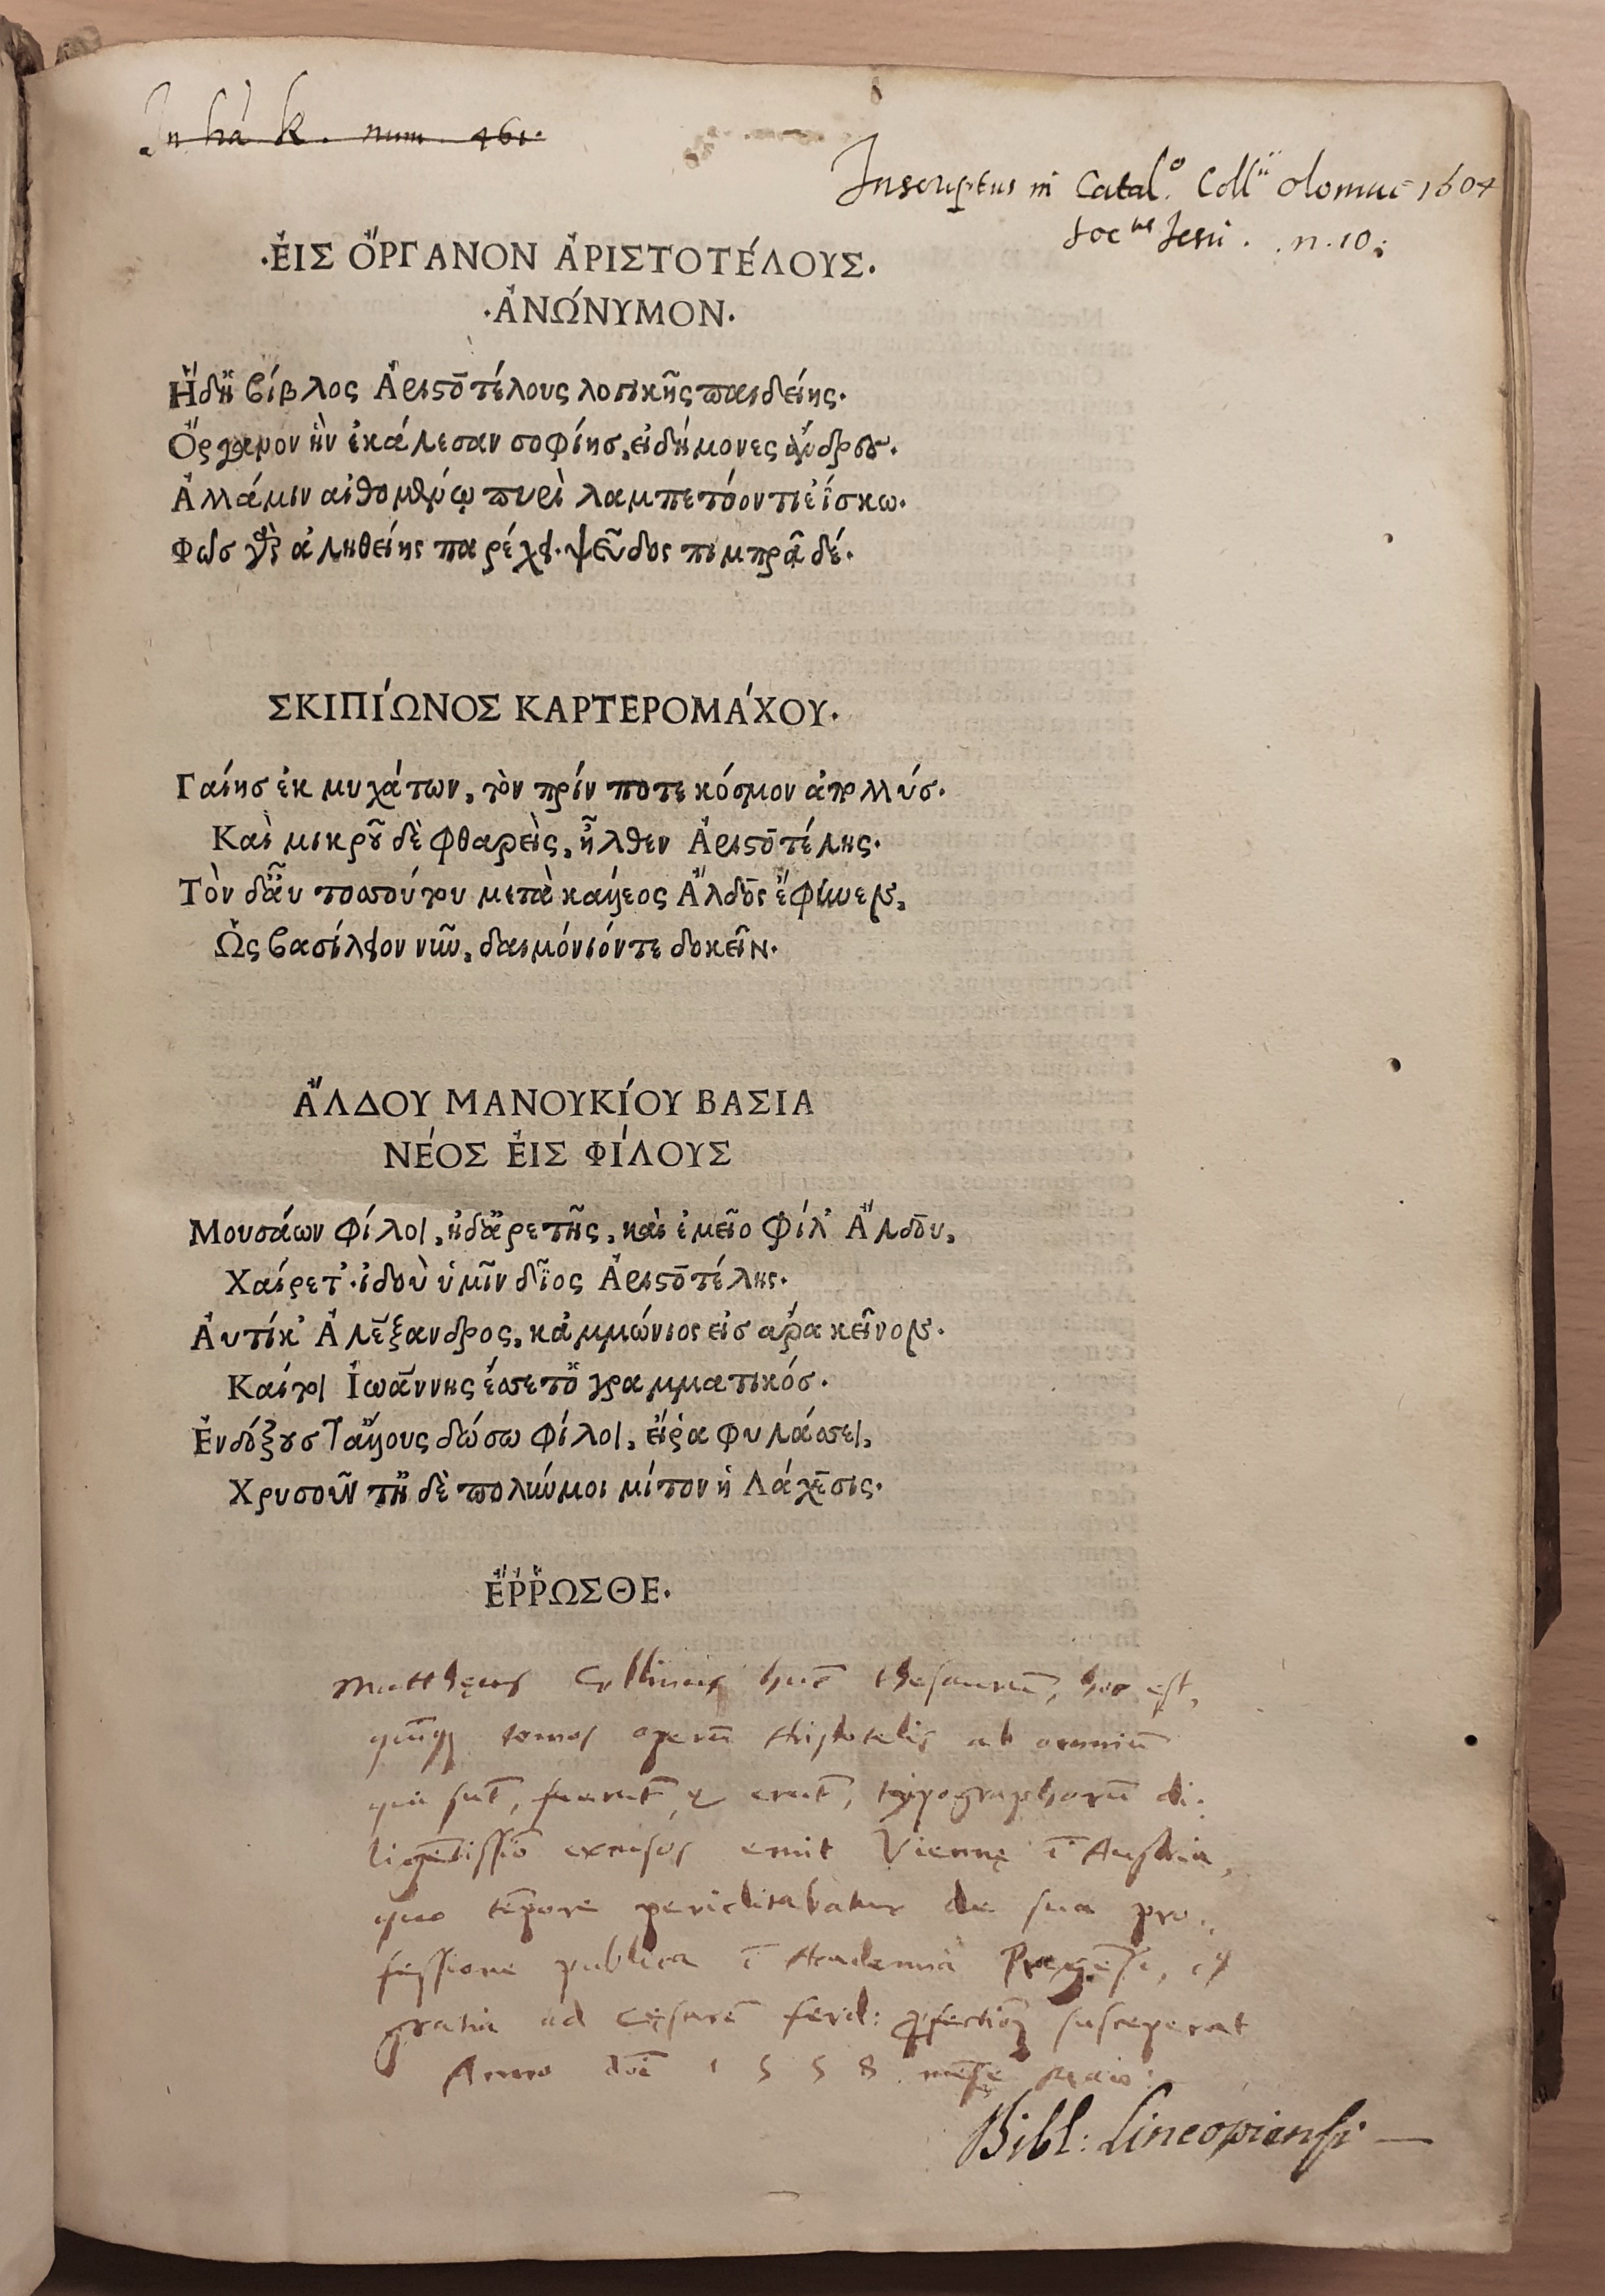 In hâ k. num. 461.
Inscriptus in Catal.º Collii Olomuc 1604
Soctis Jesu. n. 10.
·ἘΙΣ ὌΡΓΑΝΟΝ ἈΡΙΣΤΟΤΈΛΟΥΣ·
·ἈΝΏΝΥΜΟΝ·
Ἥδη βίβλος Ἀριστοτέλους λογικῆς παιδείης.
Ὄργανον ἣν ἐκάλεσαν σοφίησ, εἰδήμονες ἄνδρες.
Ἀλλάμιν αἰθομένῳ πυρὶ λαμπετόοντι ἐΐσκω.
Φῶσ γὰρ ἀληθείης παρέχει· ψεῦδος πιμπρᾶ δέ.
ΣΚΙΠΊΩΝΟΣ ΚΑΡΤΕΡΟΜΆΧΟΥ·
Γαίησ ἐκ μυχάτων, τὸν πρίν ποτε κόσμον ἀπολλύσ.
Καὶ μικροῦ δὲ φθαρεὶς, ἦλθεν Ἀριστοτέλης.
Τὸν δ᾽ἂυ τοσούτου μετὰ καίρεος Ἄλδος
Ὡς βασίλειον νῦν, δαιμόνιόν τε δοκεῖν.
ἌΛΔΟΥ ΜΑΝΟΥΚΊΟΥ ΒΑΣΙΑ
ΝΈΟΣ ἘΙΣ ΦΊΛΟΥΣ
Μουσάων φίλοι, ἠδ᾽ἀρετῆς, καὶ ἐμεῖο φίλ᾽ Ἄλδου,
Χαίρετ᾽· ἰδοὺ ὑμῖν δῖος Ἀριστοτέλης.
Ἀυτίκ᾽ Ἀλέξανδρος, κἀμμώνιος εἰσ
Καίτοι Ἰωάννης ἕσετο γραμματικόσ.
Ἐνδόξουσ δώσω φίλοι, φυλάσσει,
Χρυσοῦν τῇ δὲ μίτον ἡ Λάχεσις.
ἘΡΡΩΣΘΕ·
Matthęus Collinus hūc thesaurū, hoc est,
quīq; tomos operū Aristotelis ab omniū
qui sūt, fuerūt, & erūt, typographorū di-
ligētissīo excusos emit Viennę ī Austria,
quo tēpore periclitabatur de sua pro-
fessione publica ī Academia Pragēsi, et
gratia ad Cęsarē Ferd: ꝓfectionē susceperat
Anno doī 1558 mēse Maio.
Bibl: Lincopiensi —